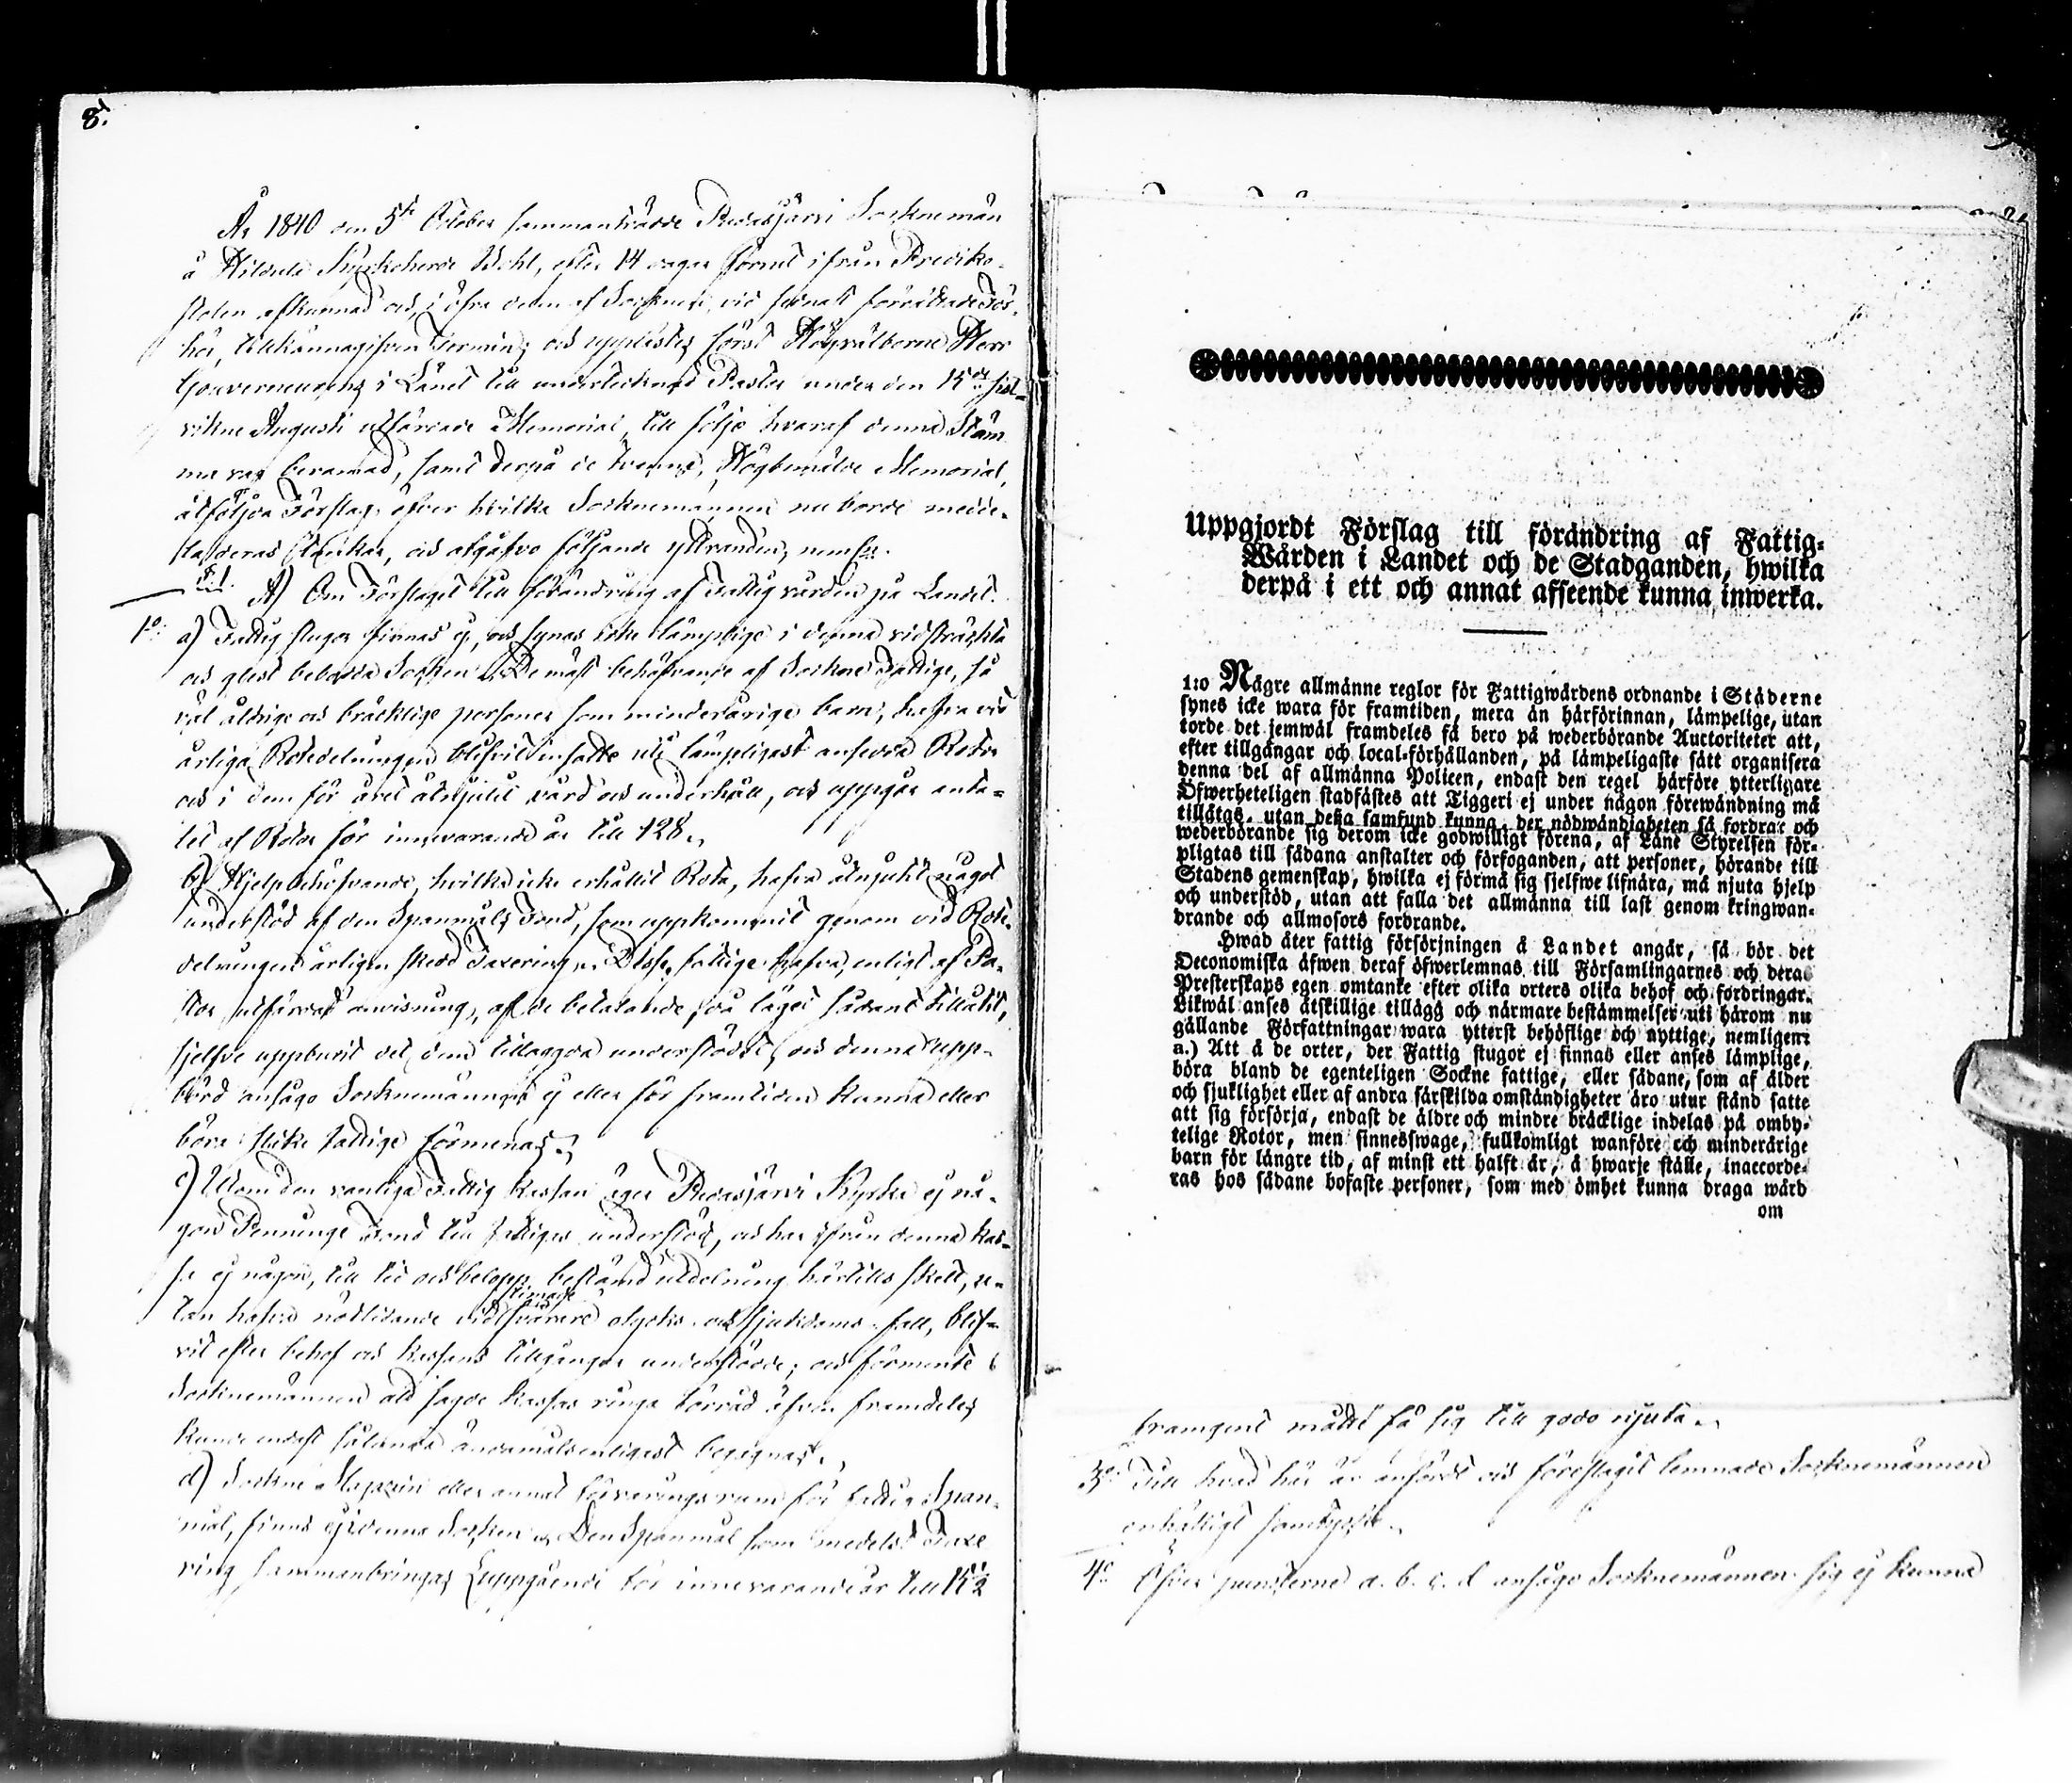 8.
År 1840 den 5te October sammanträdde Pudasjärvi Socknemän
å Hildula Kyrkoherde Bohl, efter 14 dagar förut ifrån Prediko-
stolen afkunnad och, i öfra delen af Socknen, vid senast förrättade För-
hör, tillkännagifven Termin; och upplästes först Högvälborne Herr
Gouverneurens i Länet till undertecknad Pastor under den 15de sist-
vikne Augusti utfärdade Memorial, till följe hvaraf denna Stäm-
ma var beramad, samt derpå de tvenne, Högbemälde Memorial,
åtföljda Förslag, öfver hvilka Socknemännen nu borde medde-
la deras tankar, och afgåfvo följande yttranden, neml:n.
A) Om Förslaget till förändring af Fattigvården på Landet.
1o: a) Fattig stugor finnas ej, och synas icke lämplige i denna vidsträckta
och glest bebodda Socken. De mäst behöfvande af Sockne Fattige, så
väl åldrige och bräcklige personer som minderårige barn, hafva vid
årliga Rotedelningen blifvit insatte uti lämpligast ansedda Rotar
och i dem för året åtnjutit vård och underhåll, och uppgår anta-
let af Rotar för innevarande år till 128.
b) Hjelpbehöfvande, hvilka icke erhållit Rota, hafva åtnjutit något
understöd af den Spanmåls Fond, som uppkommit genom vid Rote-
delningen årligen skedd Taxering. Desse fattige hafva, enligt af Pa-
stor utfärdad anvisning, af de betalande, då läget sådant tillåtit,
sjelfve uppburit det dem tillagda understödet, och denna upp-
börd ansågo Socknemännen ej eller för framtiden kunna eller
böra slike fattige förmenas.
c) Utom den vanliga Fattig Kassan äger Pudasjärvi Kyrka ej nå-
gon Penninge Fond till fattiges understöd, och har ifrån denna Kas-
sa ej någon, till tid och belopp bestämd utdelning härtills skett, u-
tan hafva nödlidande vid timade svårare olycks- och sjukdoms-fall, blif-
vit efter behof och Kassans tillgångar understödde; och förmente
Socknemännen att sagde Kassas ringa förråd äfven framdeles
kunde endast sålunda ändamålsenligast begagnas.
d) Sockne Magazin eller annat förvaringsrum för fattig Span-
mål, finnes ej i denna Socken. Den Spanmål som medelst Taxe-
ring sammanbringas uppgående för innevarande år till 15½
Uppgjordt Förslag till förändring af Fattig-
Wården i Landet och de Stadganden, hwilka
derpå i ett och annat afseende kunna inwerka.
1:o Någre allmänne reglor för Fattigwårdens ordnande i Städerne
synes icke wara för framtiden, mera än härförinnan, lämpelige, utan
torde det jemwäl framdeles få bero på wederbörande Auctoriteter att,
efter tillgångar och local-förhållanden, på lämpeligaste sätt organisera
denna del af allmänna Policen, endast den regel härföre ytterligare
Öfwerheteligen stadfästes att Tiggeri ej under någon förewändning må
tillåtas, utan deßa samfund kunna, der nödwändigheten så fordrar och
wederbörande sig derom icke godwilligt förena, af Läne Styrelsen för-
pligtas till sådana anstalter och förfoganden, att personer, hörande till
Stadens gemenskap, hwilka ej förmå sig sjelfwe lifnära, må njuta hjelp
och understöd, utan att falla det allmänna till last genom kringwan-
drande och allmosors fordrande.
Hwad åter fattig försörjningen å Landet angår, så bör det
Oeconomiska äfwen deraf öfwerlemnas till Församlingarnes och deras
Presterskaps egen omtanke efter olika orters olika behof och fordringar.
Likwäl anses åtskillige tillägg och närmare bestämmelser uti härom nu
gällande Författningar wara ytterst behöflige och nyttige, nemligen:
a.) Att å de orter, der Fattig stugor ej finnas eller anses lämplige,
böra bland de egenteligen Sockne fattige, eller sådane, som af ålder
och sjuklighet eller af andra särskilda omständigheter äro utur stånd satte
att sig försörja, endast de äldre och mindre bräcklige indelas på omby-
telige Rotor, men sinnesswage, fullkomligt wanföre och minderårige
barn för längre tid, af minst ett halft år, å hwarje ställe, inaccorde-
ras hos sådane bofaste personer, som med ömhet kunna draga wård
om
framgent måtte få sig till godo njuta.
3o Till hvad här är anfördt och föreslagit lemnade Socknemännen
enhälligt samtycke.
4o Öfver puncterne a. b. c. d ansågo Socknemännen sig ej kunna